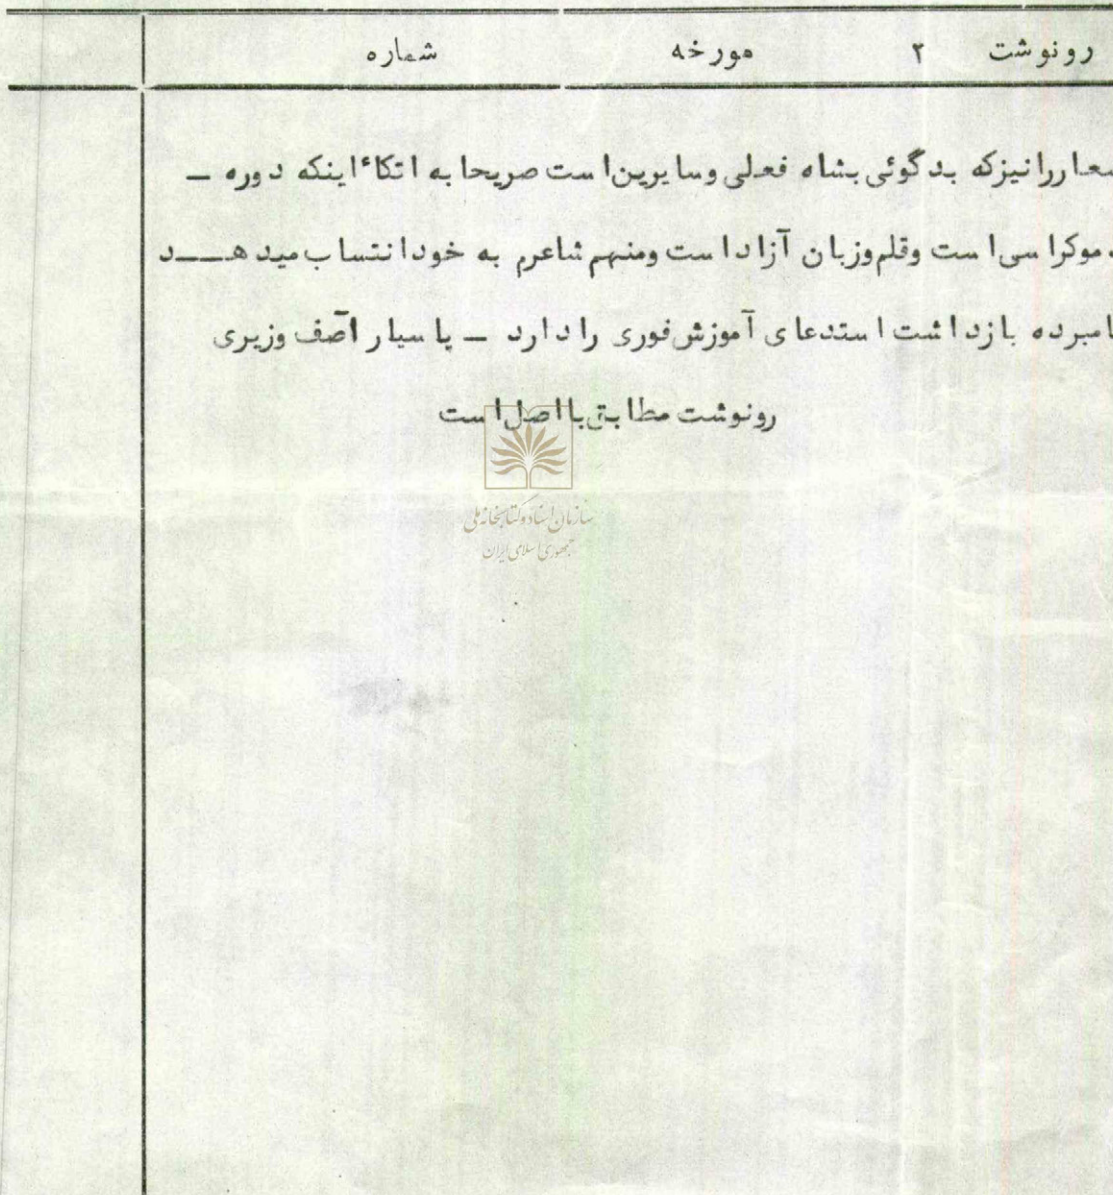 رونوشت ۲ مورخه شماره
شعار را نیز که بدگوئی بشاه فعلی و سایرین است صریحا به اتکاء اینکه دوره –
دموکراسی است و قلم وزبان آزاد است ومنهم شاعرم به خود انتساب میدهــــد
نامبرده بازداشت استدعای آموزش فوری را دارد – پاسیار آصف وزیری
رونوشت مطابق با اصل است
سازمان اسناد و کتابخانه ملی
جمهوری اسلامی ایران